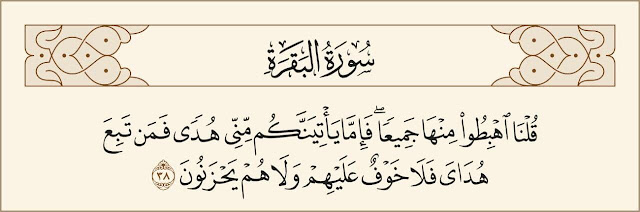 سُورَةُ البَقَرَةِ
قُلۡنَا ٱهۡبِطُواْ مِنۡهَا جَمِيعٗاۖ فَإِمَّا يَأۡتِيَنَّكُم مِّنِّي هُدٗى فَمَن تَبِعَ
هُدَايَ فَلَا خَوۡفٌ عَلَيۡهِمۡ وَلَا هُمۡ يَحۡزَنُونَ ٣٨